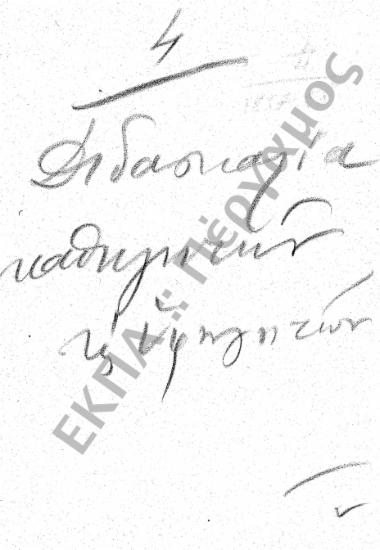 4
Διδασκαλία
καθηγητῶν
ϗ ὑφηγητῶν
ΕΚΠΑ :: Πέργαμος